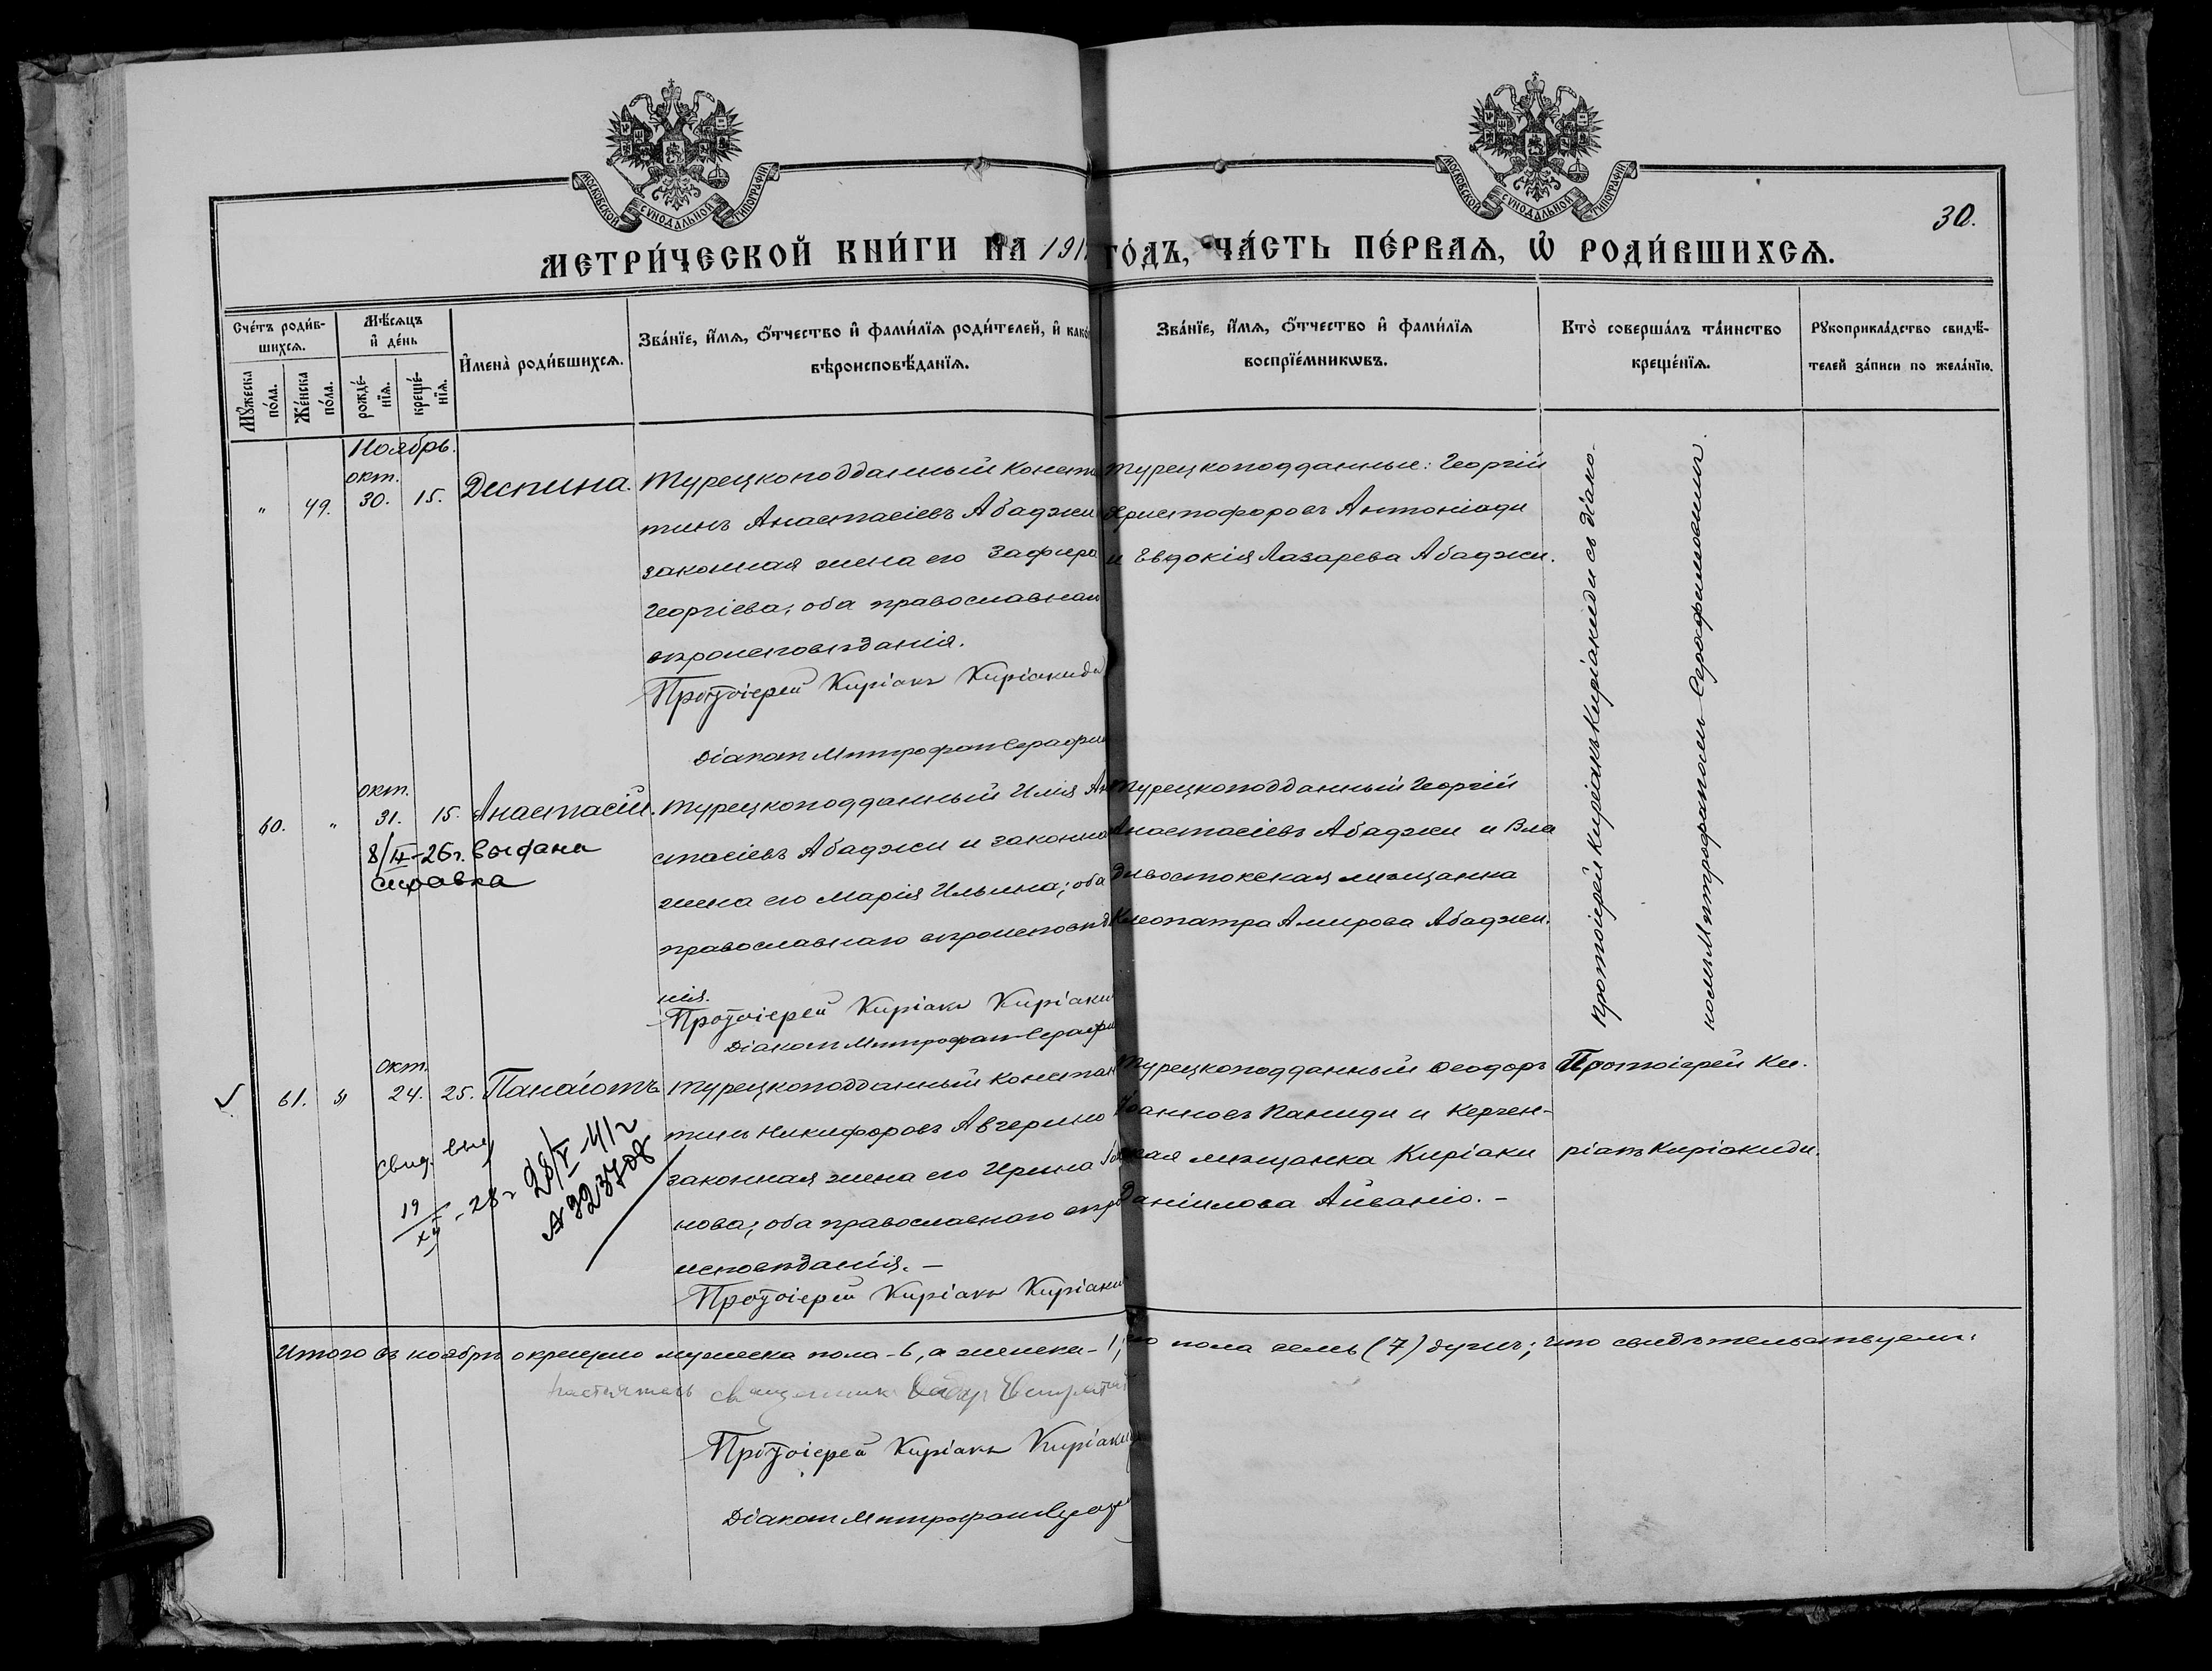 МОСКОВСКОЙ СУНОДАЛЬНОЙ ТИПОГРАФІИ
МОСКОВСКОЙ СУНОДАЛЬНОЙ ТИПОГРАФІИ
30.
МЕТРИ́ЧЕСКОЙ КНИ́ГИ НА 191 ГО́ДЪ, ЧА́СТЬ ПЕ́РВАЯ, Ѡ҆ РОДИ́ВШИХСЯ.
Сче́тъ роди́вшихся.
Му́жеска по́ла.
Же́нска по́ла.
Мѣ́сяцъ и҆ де́нь
рожде́нїя.
креще́нїя.
И҆мена̀ роди́вшихся.
Зва́нїе, и҆́мя, о҆́тчество и҆ фами́лїя роди́телей, и҆ како́
вѣроисповѣ́данїя.
Зва́нїе, и҆́мя, о҆́тчество и҆ фами́лїя
воспрїе́мникѡвъ.
Кто̀ соверша́лъ та́инство
креще́нїя.
Рꙋкоприкла́дство свидѣ́-
телей за́писи по жела́нїю.
Ноябрь.
окт.
" 49. 30. 15. Деспина.
Турецкоподданный Конста
тинъ Анастасіевъ Абаджи
законная жена его Зафира
Георгіева; оба православнаго
вѣроисповѣданія.
Протоіерей Киріакъ Киріакиди
Діаконъ Митрофанъ Серафим
Турецкоподданные: Георгій
Христофоровъ Антоніади
и Евдокія Лазарева Абаджи.
Протоіерей Киріакъ Киріакиди съ діако-
номъ Митрофаномъ Серафимовымъ.
окт.
60. " 31. 15. Анастасій.
8/IX-26г. выдана
справка
Турецкоподданный Илія Ан
стасіевъ Абаджи и законная
жена его Марія Ильина; оба
православнаго вѣроисповѣд
нія.
Протоіерей Киріакъ Киріаки
Діаконъ Митрофанъ Серафи
Турецкоподданный Георгій
Анастасіевъ Абаджи и Вла
дивостокская мѣщанка
Клеопатра Амирова Абаджи.
окт.
61. " 24. 25. Панаіотъ
Свид. выд
19/XII - 28г
28/V 41г
№ 923708
Турецкоподданный Констан
тинъ Никифоровъ Авгерино
законная жена его Ирина
нова; оба православнаго вѣро
исповѣданія. —
Протоіерей Киріакъ Киріаки
Турецкоподданный Ѳеодоръ
Іоанновъ Паниди и Керчен-
ская мѣщанка Киріаки
Даніилова Айваніо. —
Протоіерей Ки-
ріакъ Киріакиди.
Итого въ ноябрѣ окрещено мужеска пола - 6, а женска - 1, го пола семь (7) душъ; что свидѣтельствуемъ:
Настоятель священник
Протоіерей Киріакъ Киріаки
Діаконъ Митрофанъ Сераф